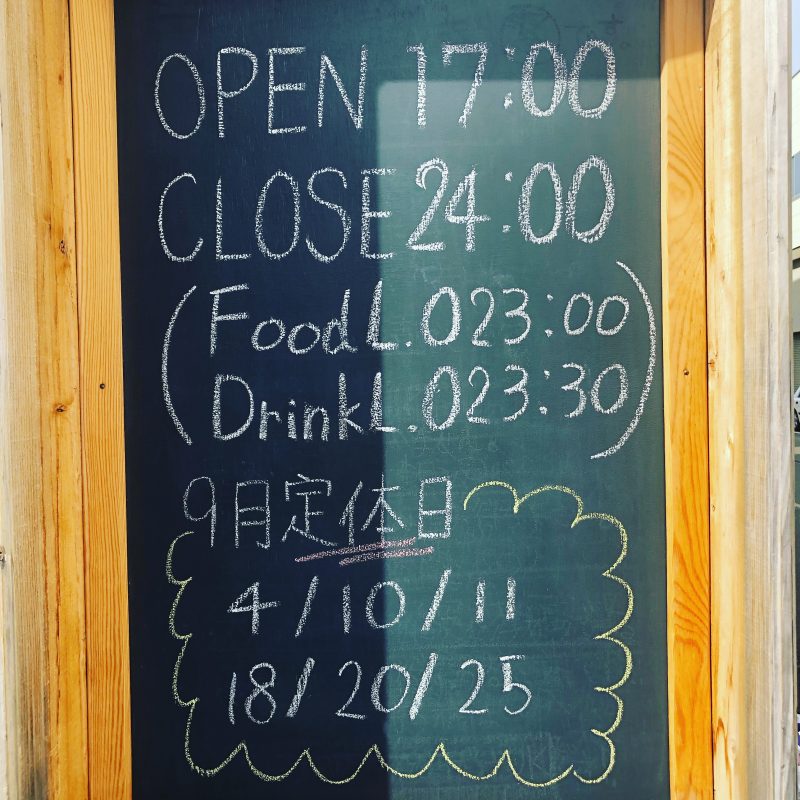 OPEN 17:00
CLOSE 24:00
(Food L.O 23:00
Drink L.O 23:30)
9月定休日
4/10/11
18/20/25